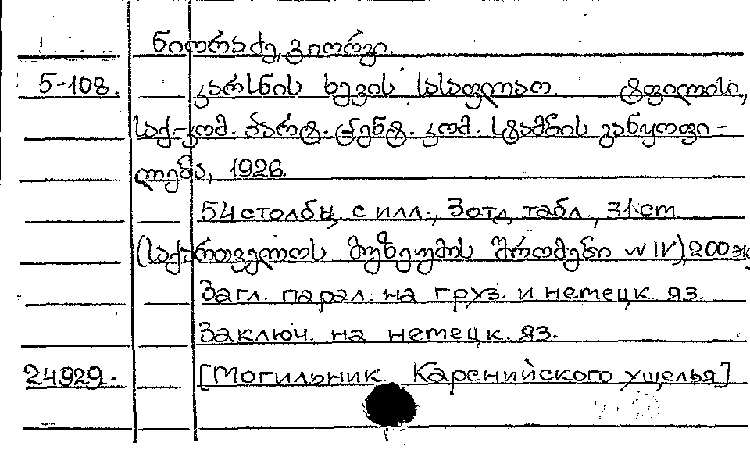 ნიორაძე, გიორგი.
5-108. კარსნის ხევის სასაფლაო. ტფილისი,
საქ-კომ. პარტ. ცენტ. კომ. სტამბის განყოფი-
ლება, 1926.
54 столбц, с илл., 3 отд. табл., 31 cm
(საქართველოს მუზეუმის შრომები N IV), 200 эк
Загл. парал. на груз. и немецк. яз.
Заключ. на немецк. яз.
24929. [Могильник Карснийского ущелья]